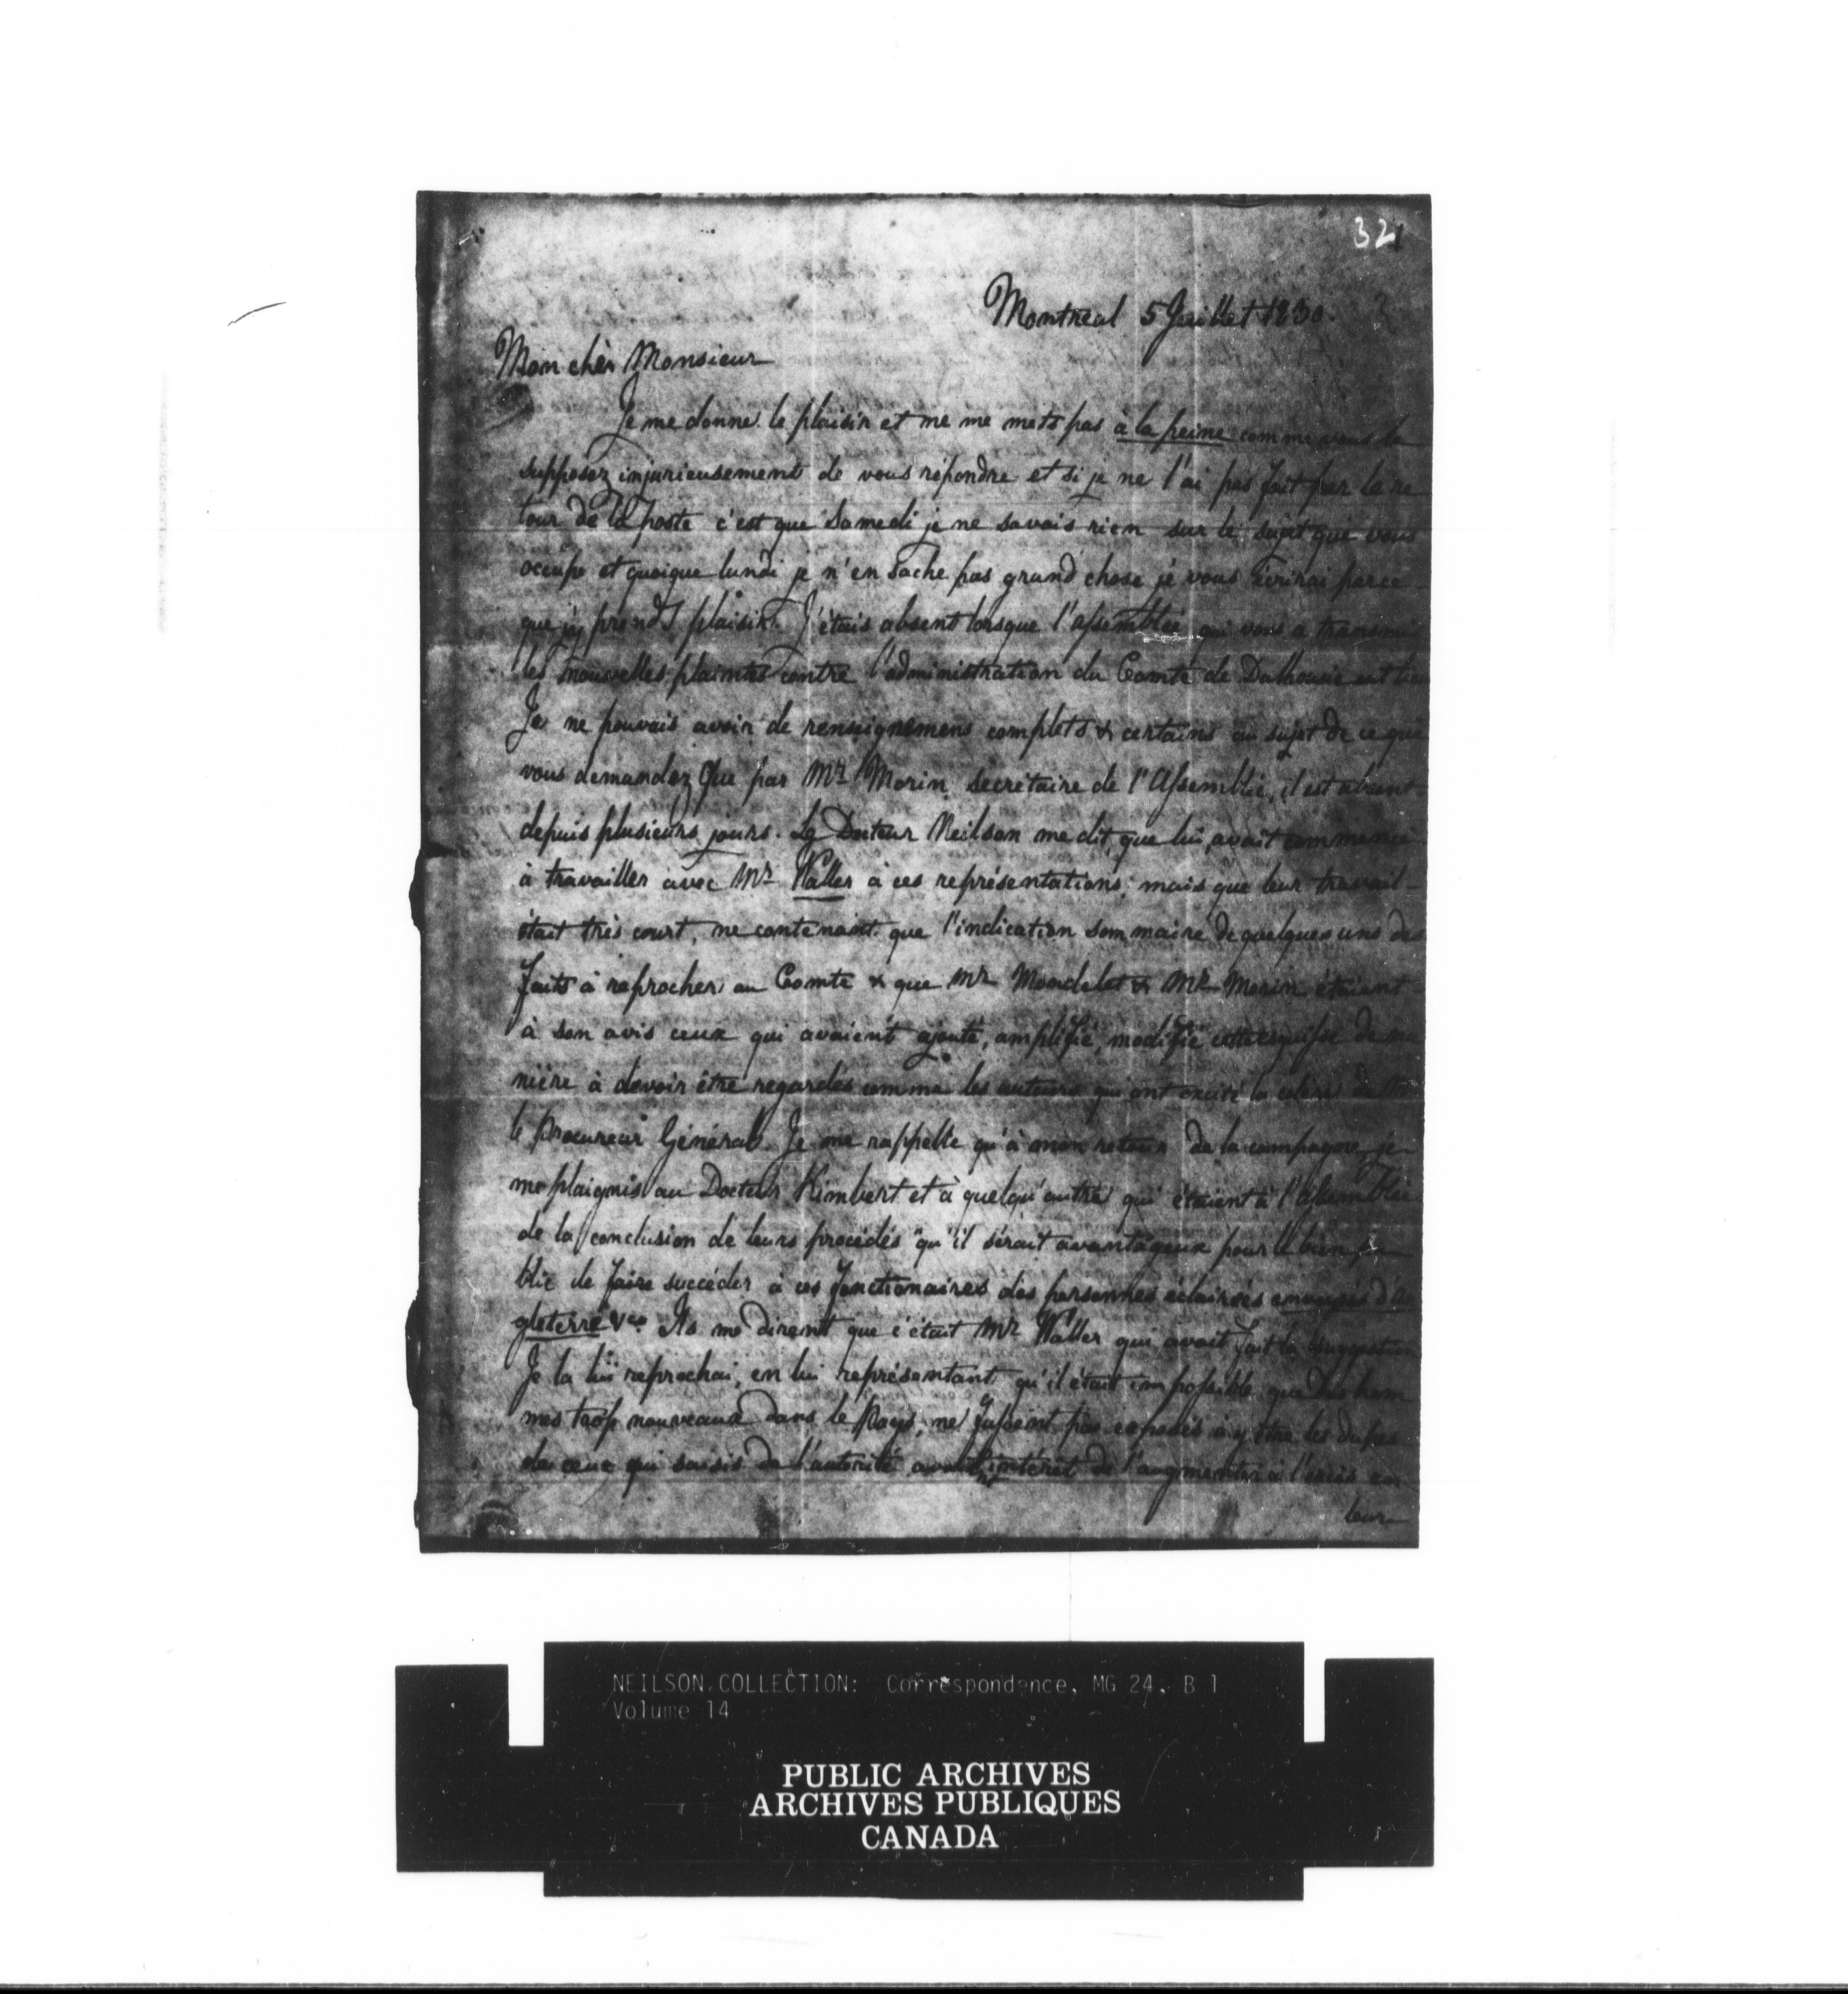 321
Montreal 5 Juillet 1830.
Mon cher Monsieur
Je me donne le plaisir et ne me mets pas à la peine comme vous le
supposez injurieusement de vous répondre et si je ne l'ai pas fait par le re
tour de la poste c'est que Samedi je ne savais rien sur le sujet qui vous
occupe et quoique lundi je n'en sache pas grand chose je vous écrirai parce
que j'y prends plaisir. J'étais absent lorsque l'assemblée qui vous a transmis
les nouvelles plaintes contre l'administration du Comte de Dalhousie eut lieu
Je ne pouvais avoir de renseignemens complets & certains au sujet de ce que
vous demandez que par Mr Morin secrétaire de l'Assemblée, il est absent
depuis plusieurs jours. Le Docteur Neilson me dit, que lui avait commencé
à travailler avec Mr Waller à ces représentations; mais que leur travail
était très court, ne contenant que l'indication sommaire de quelques uns des
faits à reprocher au Comte & que Mr Mondelet & Mr Morin étaient
à son avis ceux qui avaient ajouté, amplifié, modifié cette esquisse de ma
nière à devoir être regardés comme les auteurs qui ont excité la colère de
le Procureur Général. Je me rappelle qu'à mon retour de la campagne je
me plaignis au Docteur Kimbert et à quelqu'autre qui étaient à l'assemblée
de la conclusion de leurs procédés "qu'il serait avantageux pour le bien pu
blic de faire succéder à ces fonctionaires des personnes éclairées envoyés d'An
gleterre &ca. Ils me dirent que c'était Mr Waller qui avait fait la suggestion
Je la lui reprochai, en lui représentant qu'il était impossible que des hom
mes trop nouveaux dans le Pays, ne fussent pas exposés à y être les dupes
de ceux qui saisis de l'autorité avaient intérêt de l'augmenter à l'excès en
leur
NEILSON COLLECTION: Correspondence, MG 24, B 1
Volume 14
PUBLIC ARCHIVES
ARCHIVES PUBLIQUES
CANADA